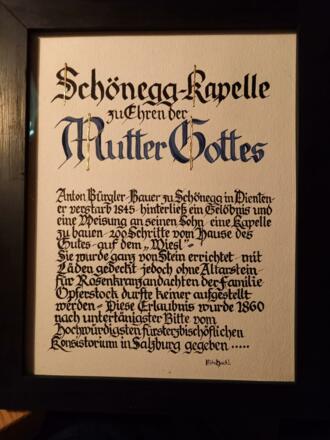 Schönegg-Kapelle
zu Ehren der
Mutter Gottes
Anton Bürgler-Bauer zu Schönegg in Dienten-
er verstarb 1845-hinterließ ein Gelöbnis und
eine Weisung an seinen Sohn-eine Kapelle
zu bauen-200 Schritte vom Hause des
Gutes-auf dem „Wiesl"-
Sie wurde ganz von Stein errichtet-mit
Läden gedeckt jedoch ohne Altarstein-
für Rosenkranzandachten der Familie
Opferstock durfte keiner aufgestellt
werden-Diese Erlaubnis wurde 1860
nach untertänigster Bitte vom
Hochwürdigsten fürsterzbischöflichen
Konsistorium in Salzburg gegeben.....